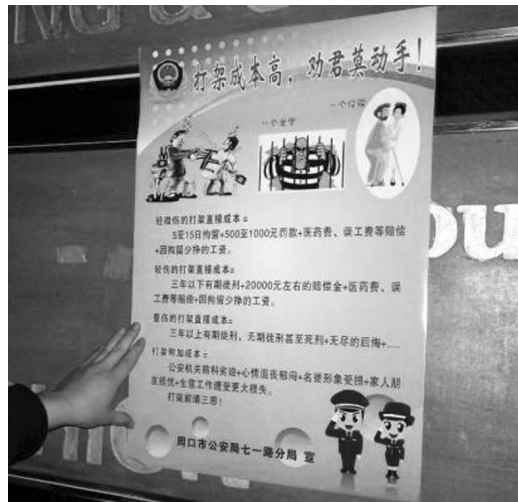 NG & C
打架成本高，劝君莫动手！
轻微伤的打架直接成本=
5至15日拘留+500至1000元罚款+医药费、误工费等赔偿
+因拘留少挣的工资。
轻伤的打架直接成本=
三年以下有期徒刑+20000元左右的赔偿金+医药费、误
工费等赔偿+因拘留少挣的工资。
重伤的打架直接成本=
三年以上有期徒刑、无期徒刑甚至死刑+无尽的后悔+....
打架附加成本=
公安机关前科劣迹+心情沮丧郁闷+名誉形象受损+家人朋
友担忧+生意工作遭受更大损失。
打架前请三思！
周口市公安局七一路分局 宣
ou